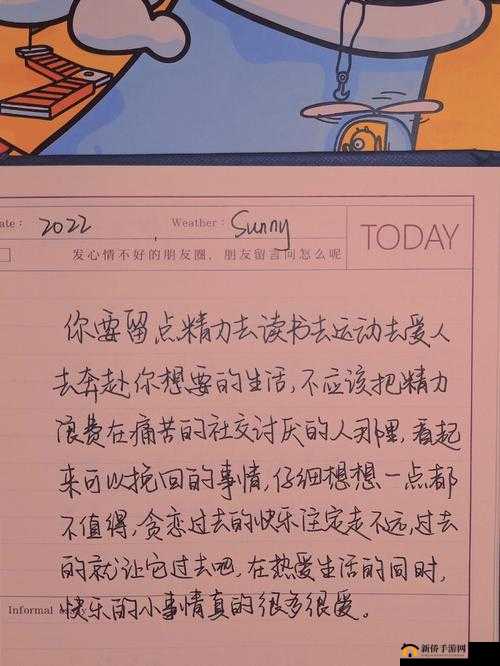 Date: 2022 Weather: Sunny
TODAY
发心情不好的朋友圈，朋友留言问怎么呢
你要留点精力去读书去运动去爱人
去奔赴你想要的生活，不应该把精力
浪费在痛苦的社交讨厌的人那里，看起
来可以挽回的事情，仔细想想一点都
不值得，贪恋过去的快乐注定走不远，过去
的就让它过去吧，在热爱生活的同时，
Informal
快乐的小事情真的很多很爱。
新侨手游网